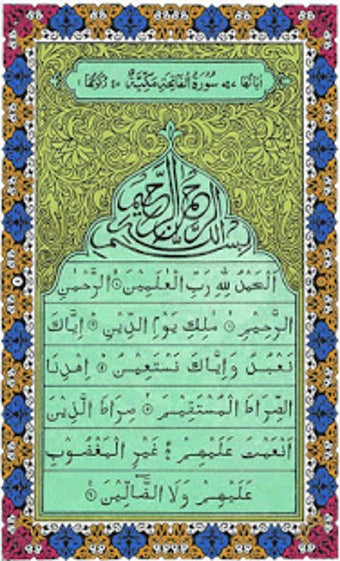 اٰيَاتُهَا ٧ سُوْرَةُ الْفَاتِحَةِ مَكِّيَّةٌ ٥ رُكُوْعُهَا ١
بِسْمِ اللّٰهِ الرَّحْمٰنِ الرَّحِيْمِ
اَلْحَمْدُ لِلّٰهِ رَبِّ الْعٰلَمِيْنَ ۙ الرَّحْمٰنِ
الرَّحِيْمِ ۙ مٰلِكِ يَوْمِ الدِّيْنِ ۗ اِيَّاكَ
نَعْبُدُ وَاِيَّاكَ نَسْتَعِيْنُ ۗ اِهْدِنَا
الصِّرَاطَ الْمُسْتَقِيْمَ ۙ صِرَاطَ الَّذِيْنَ
اَنْعَمْتَ عَلَيْهِمْ ۙ غَيْرِ الْمَغْضُوْبِ
عَلَيْهِمْ وَلَا الضَّآلِّيْنَ